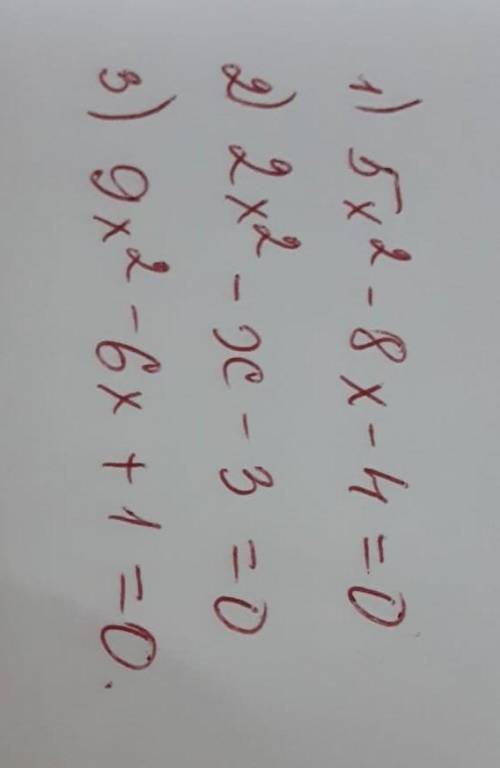 1) 5x² - 8x - 4 = 0
2) 2x² - x - 3 = 0
3) 9x² - 6x + 1 = 0.